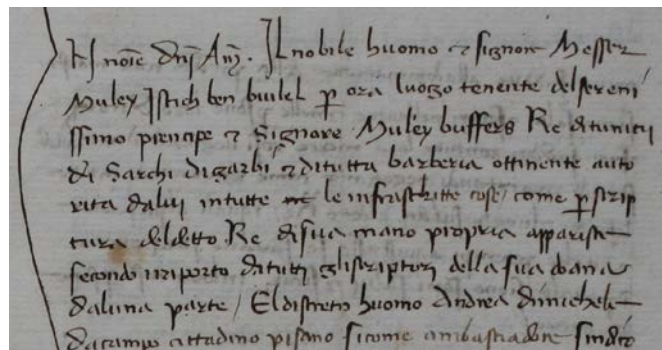 In noīe dnj Am̄. Il nobile huomo ⁊ signore Messer
Muley Istich ben builel p̱ ora luogo tenente del sereni
ssimo principe ⁊ Signore Muley buffers Re di tunitij
di Sarchi di garbi ⁊ di tutta barberia ottinente auto
rita da lui in tutte le infrascritte cose/ come p̱ scrip
tura del detto Re di sua mano propria apparisce
secondo rapporto di tutti gli scriptori della sua doana
da luna parte/ El discreto huomo Andrea di michele
da campo cittadino pisano sicome ambasciadore sindico